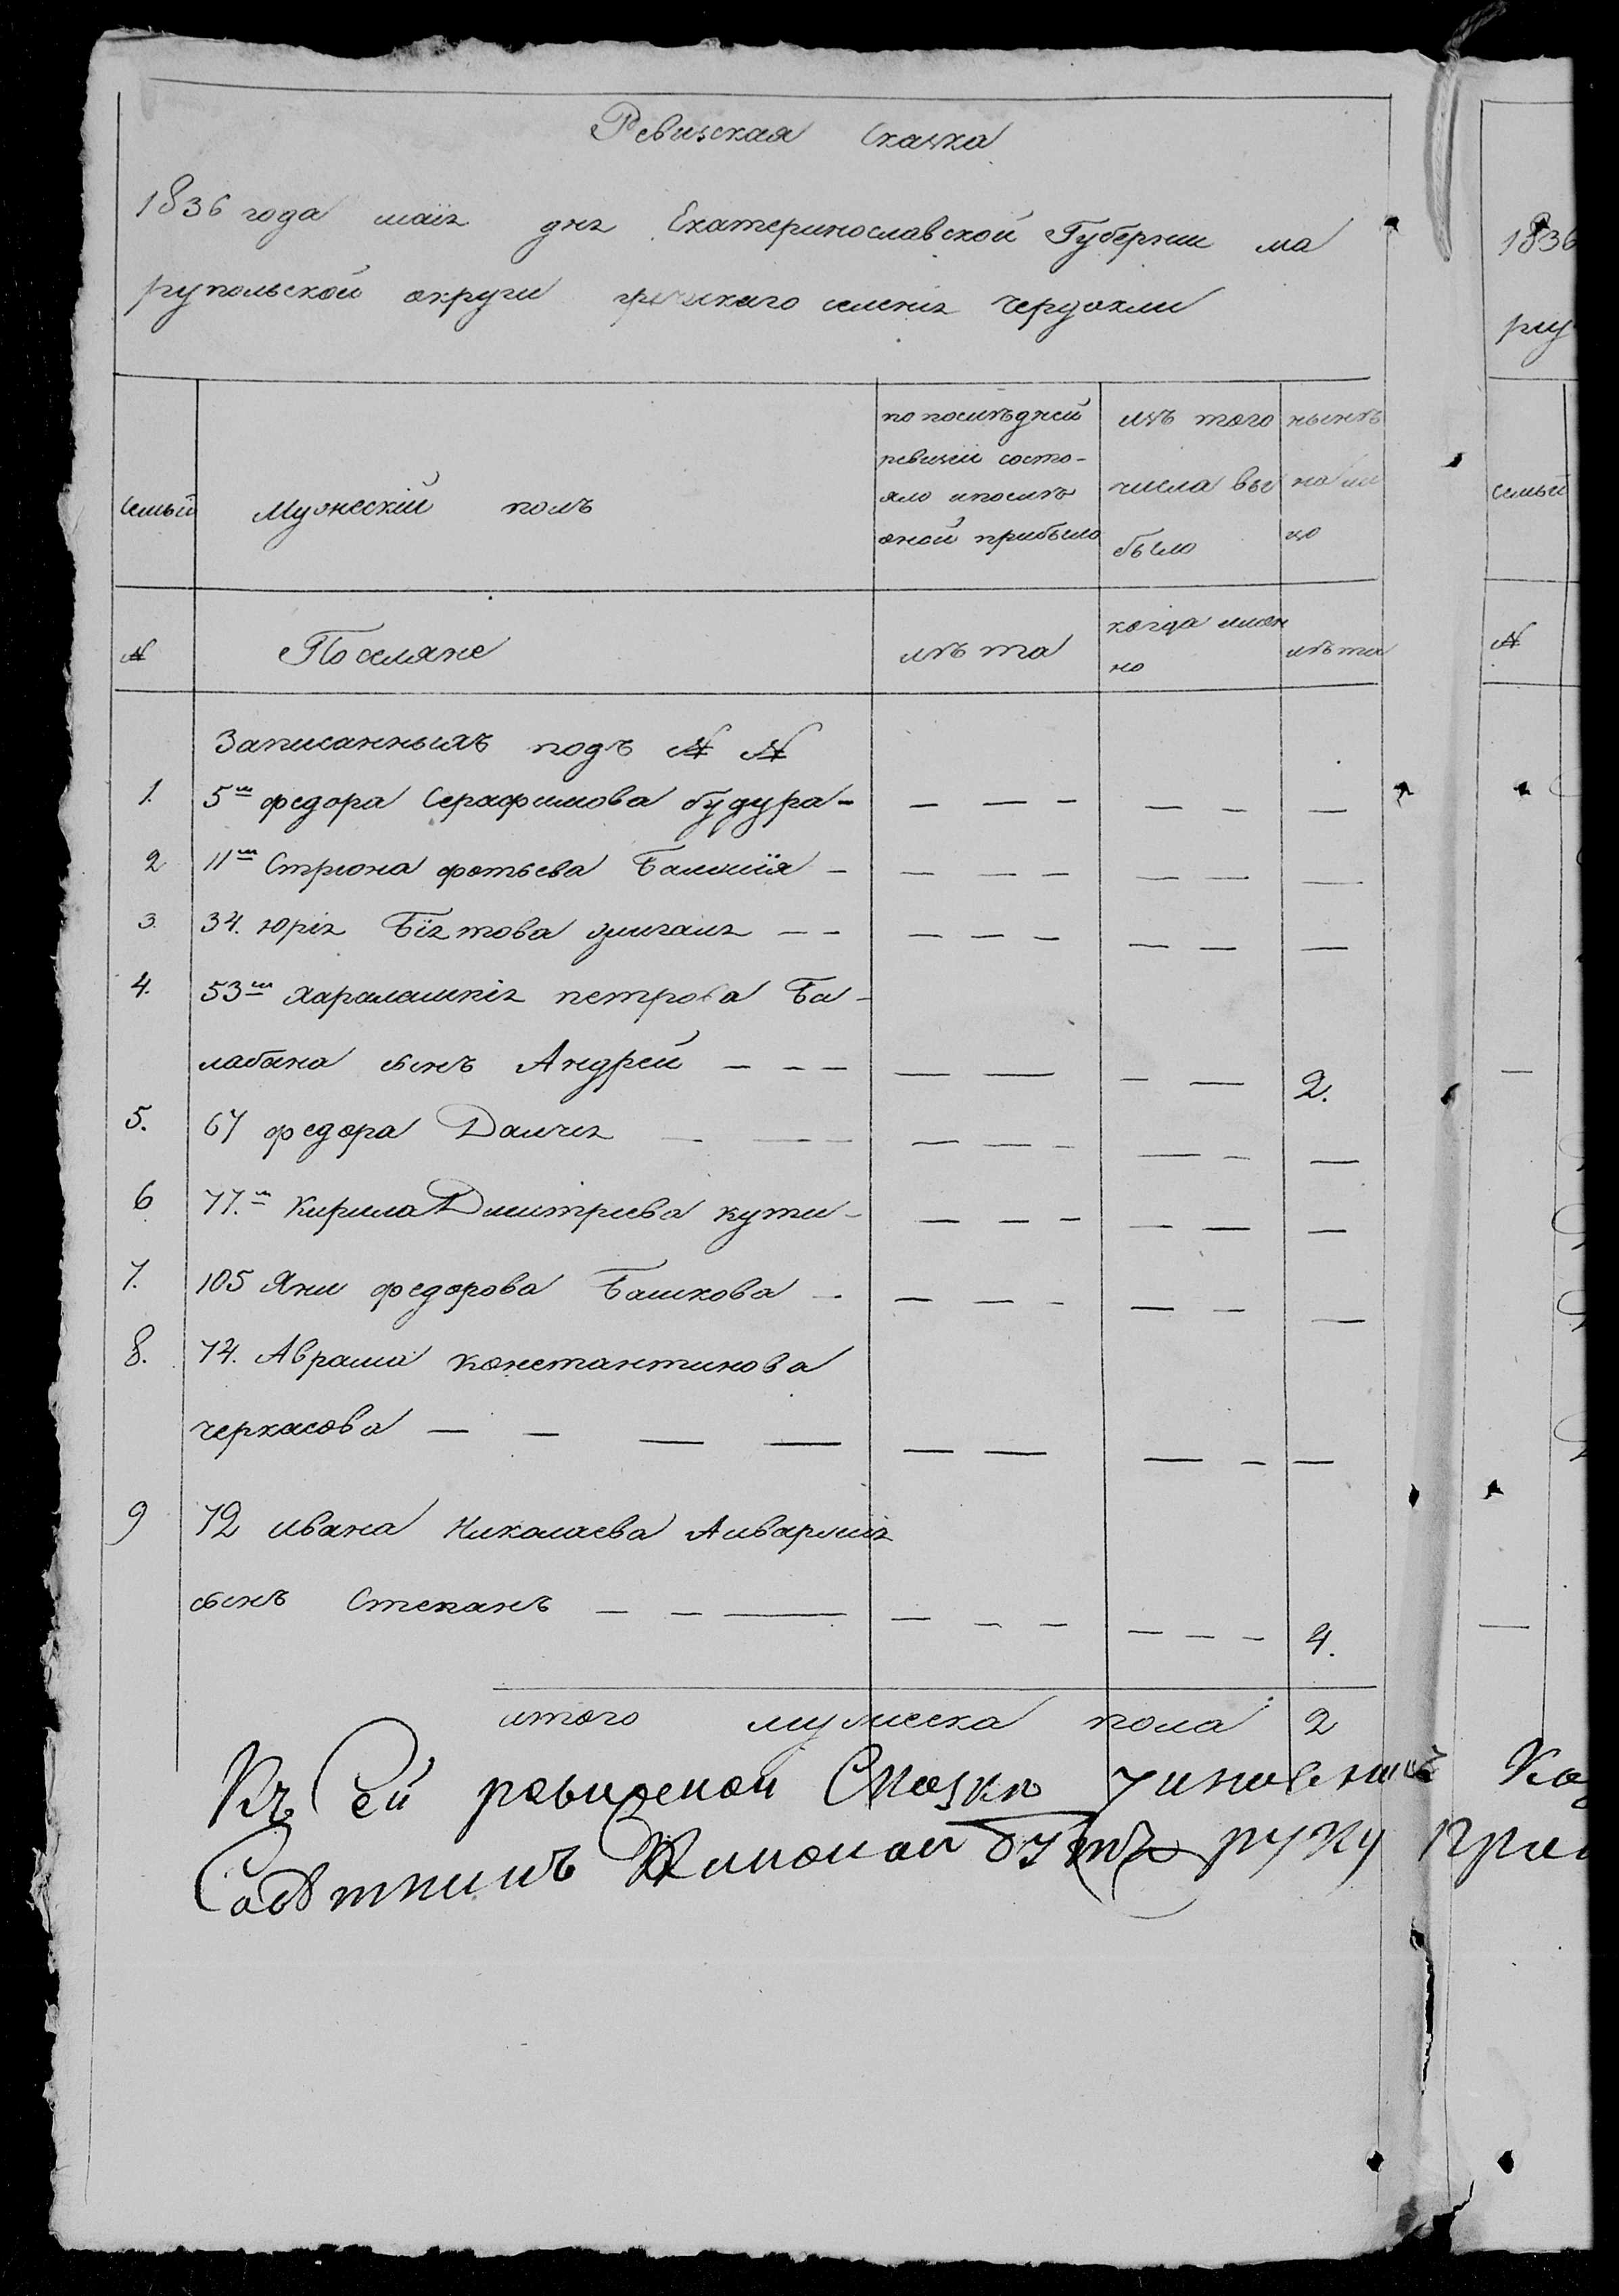 Ревизская Сказка
1836 года маія дня Екатеринославской Губернии ма
рупольской округи греческаго селенія чердакли
семьи
Мужескій полъ
по последней
ревизіи состо-
яло и после
оной прибыло
изъ того
числа вы
было
ныне
на ли
цо
№
Поселяне
лѣта
когда имян
но
лѣта
Записанныхъ подъ № №
1. 5м федора Серафимова будура - — — — — — —
2 11м Стріона фотьева — — — — — — —
3. 34. юрія — — — — — — — —
4. 53м харалампія петрова Ба-
лабана сынъ Андрей — — — — — — — 2.
5. 67 федора — — — — — — — — —
6 77.м Кирила Дмитриева кути — — — — — — —
7. 105 Яни федорова Башкова — — — — — — —
8. 74. Аврама константинова
черкасова — — — — — — — — —
9 72 ивана Николаева
сынъ Степанъ — — — — — — — — — 4.
итого мужеска пола 2
Къ сей Сказки
руку
1836
семьи
№